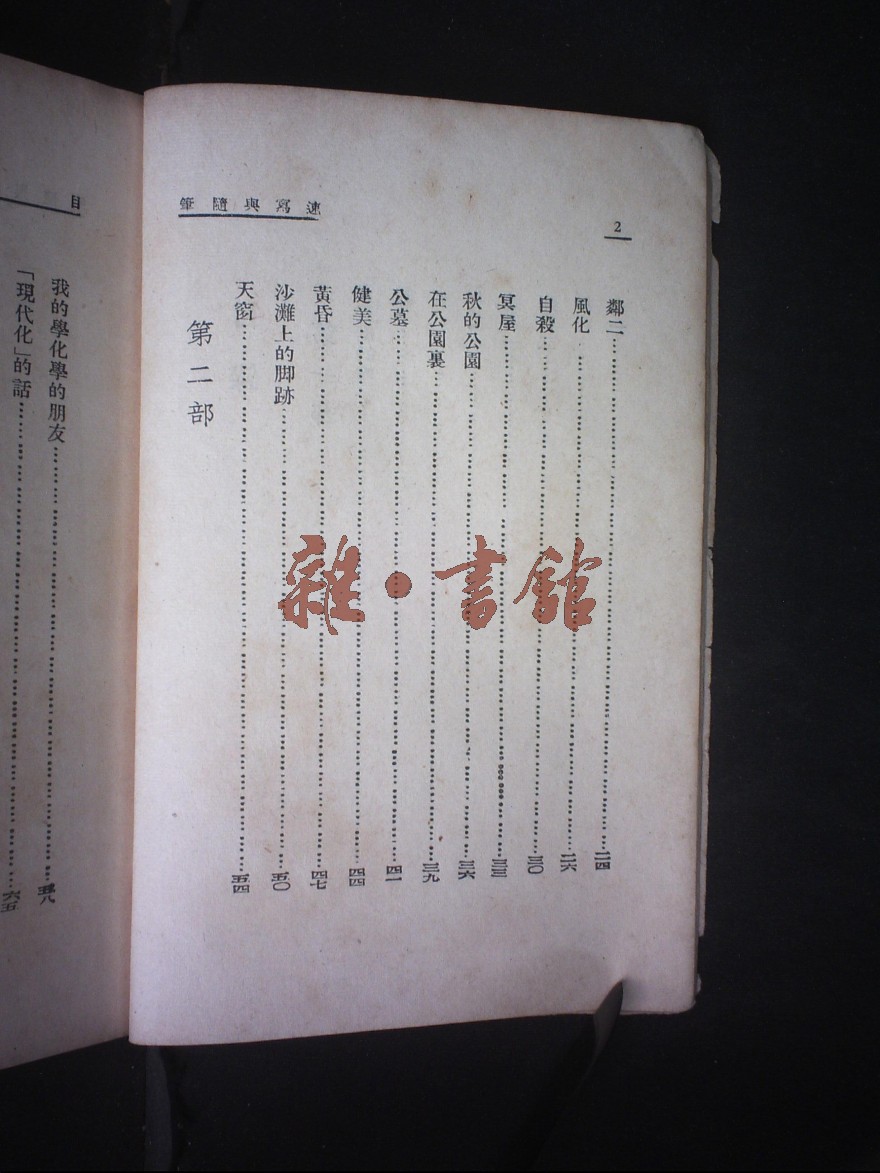 2
速寫與隨筆
鄰二……二四
風化……二六
自殺……三〇
冥屋……三三
秋的公園……三六
在公園裏……三九
公墓……四一
健美……四四
黃昏……四七
沙灘上的脚跡……五〇
天窗……五四
第二部
目
我的學化學的朋友……五八
「現代化」的話……六五
雜·書館